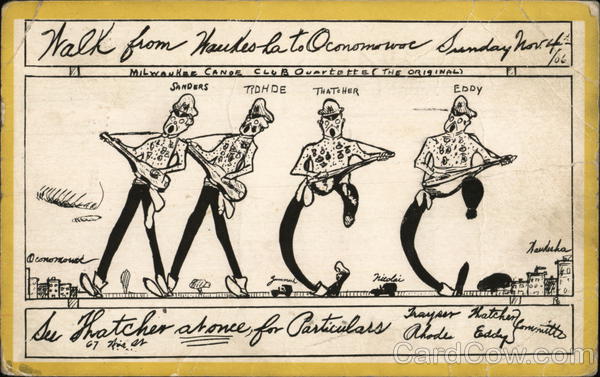 Walk from Waukesha to Oconomowoc Sunday Nov 4th /06
MILWAUKEE CANOE CLUB QUARTETTE (THE ORIGINAL)
SANDERS ROHDE THATCHER EDDY
Oconomowoc
Waukesha
Nicolai
See Thatcher at once for Particulars
67 Wis St
Trayser Thatcher
Rhode Eddy Committe
CardCow.com